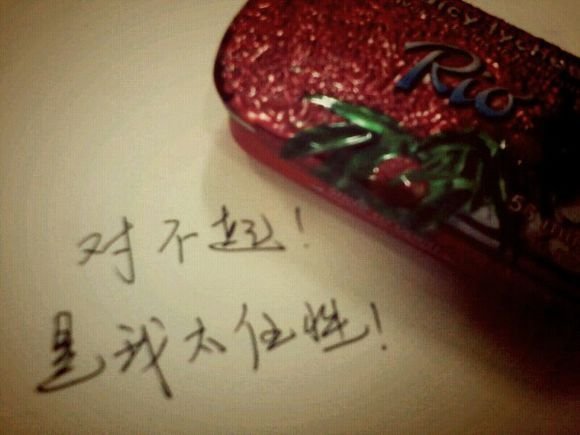 Rio
对不起!
是我太任性!